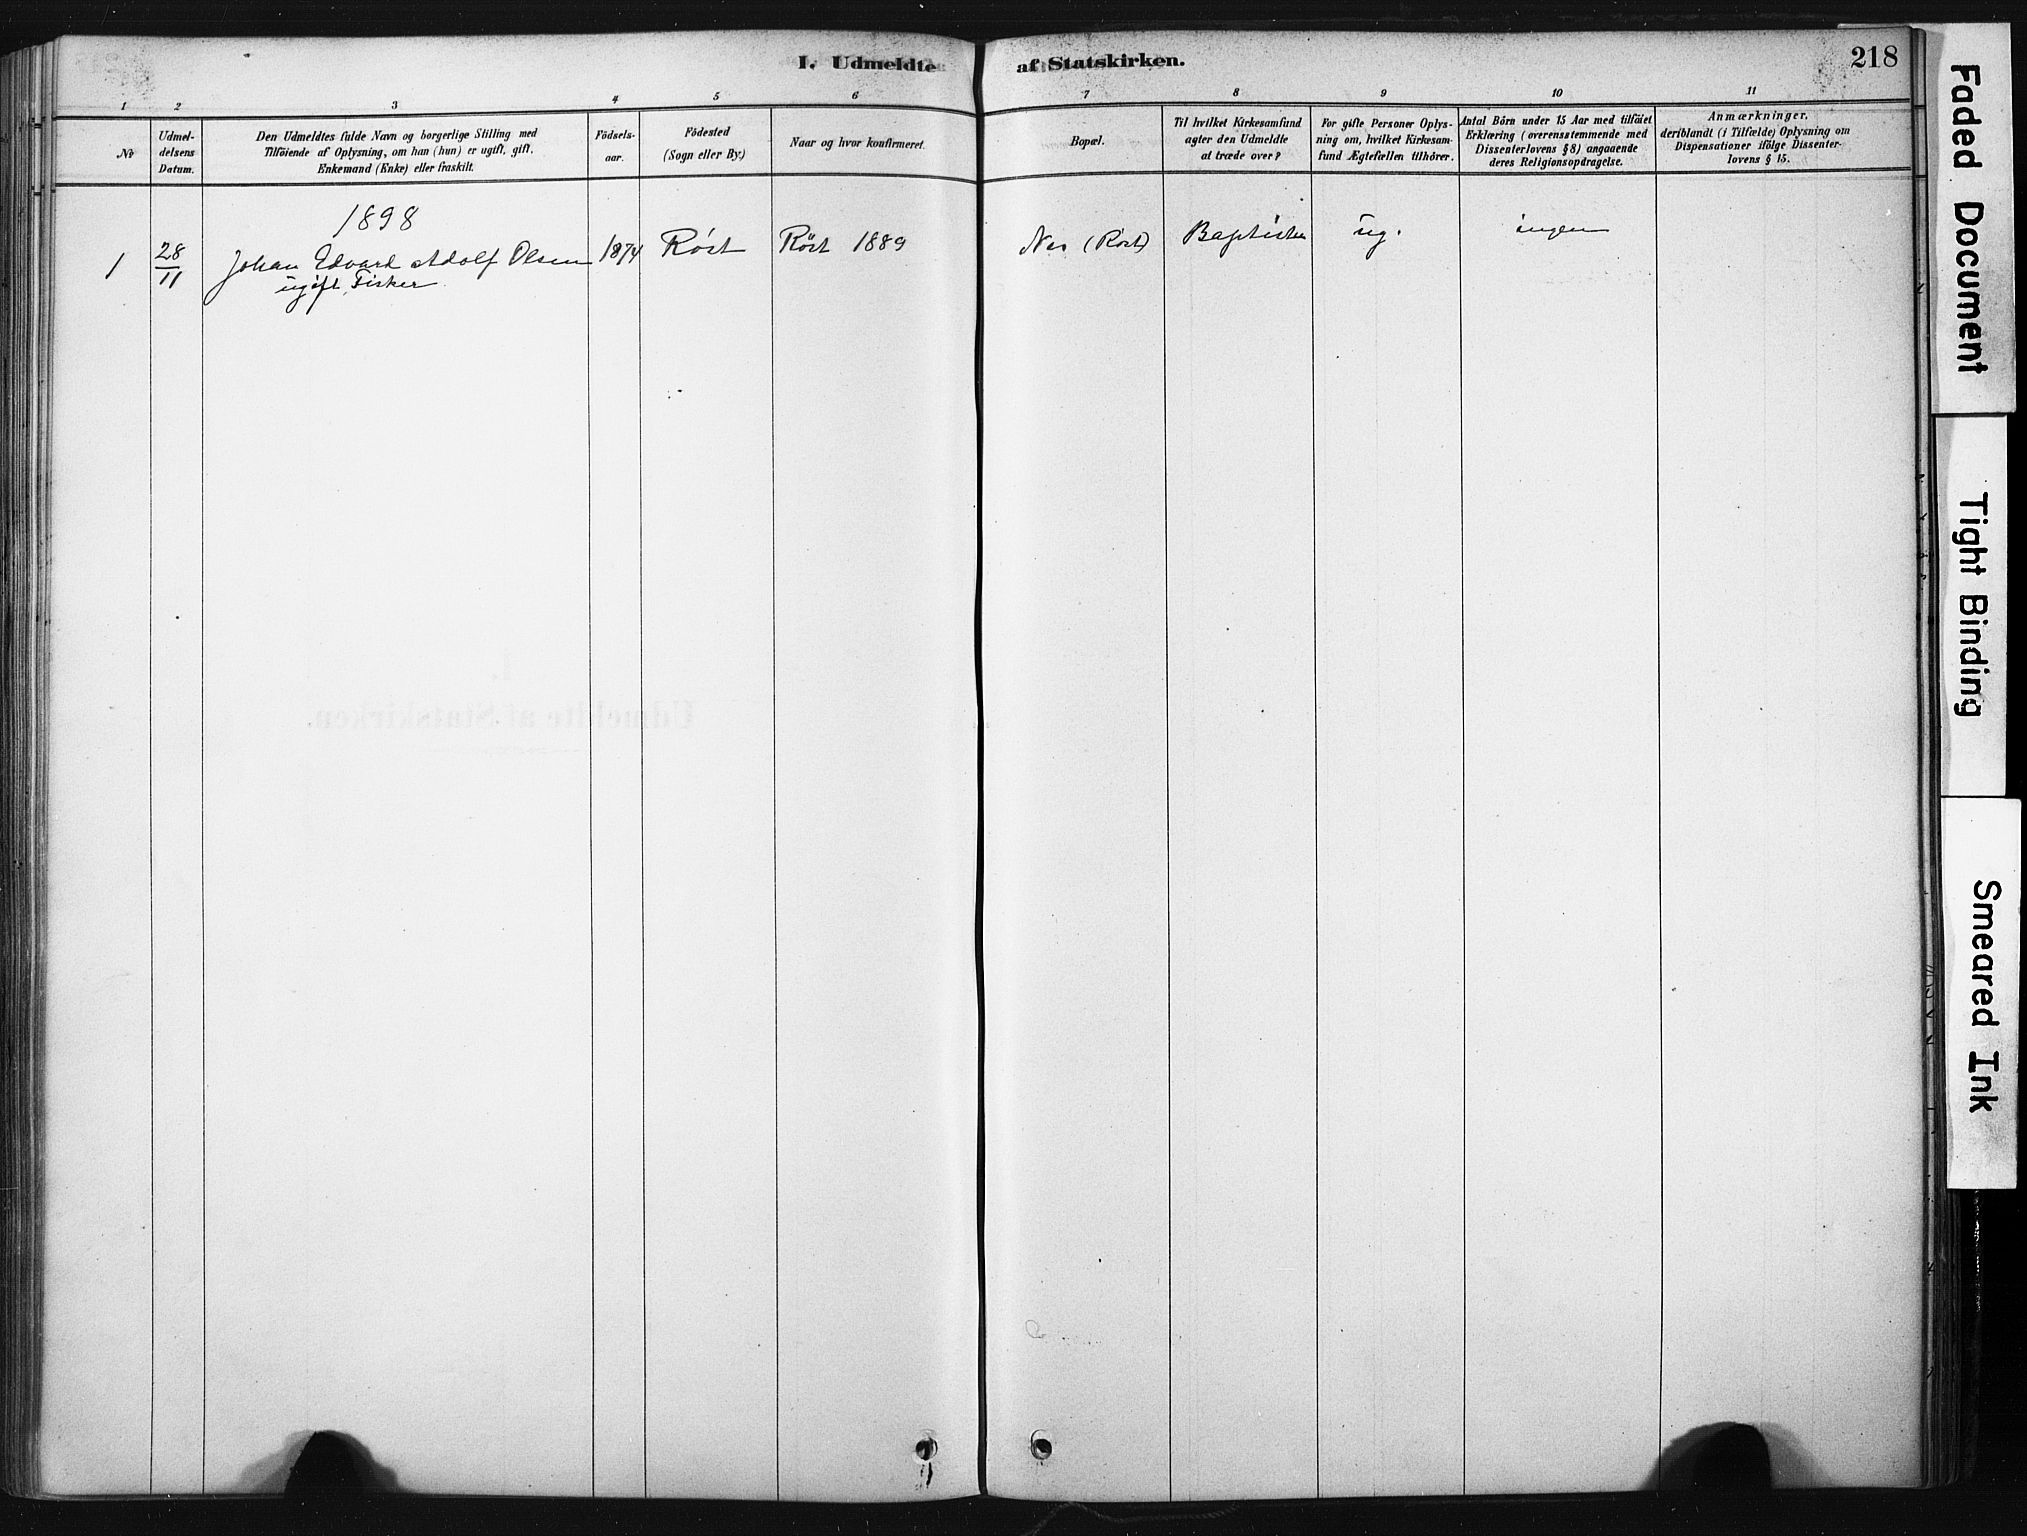 I. Udmeldte af Statskirken.
218
1 2 3 4 5 6 7 8 9 10 11
No
Udmel-
delsens
Datum.
Den Udmeldtes fulde Navn og borgerlige Stilling med
Tilföiende af Oplysning, om han (hun) er ugift, gift,
Enkemand (Enke) eller fraskilt.
Födsels-
aar.
Födested
(Sogn eller By.)
Naar og hvor konfirmeret.
Bopæl.
Til hvilket Kirkesamfund
agter den Udmeldte
at træde over?
For gifte Personer Oplys-
ning om, hvilket Kirkesam-
fund Ægtefællen tilhörer.
Antal Börn under 15 Aar med tilföiet
Erklæring (overensstemmende med
Dissenterlovens § 8) angaaende
deres Religionsopdragelse.
Anmærkninger,
deriblandt (i Tilfælde) Oplysning om
Dispensationer ifölge Dissenter-
lovens § 15.
1898
1 28/11 Johan Edvard Adolf Olsen 1874 Röst Röst 1889 Nes (Röst) ug. ingen
ugift, Fisker
Faded Document
Tight Binding
Smeared Ink